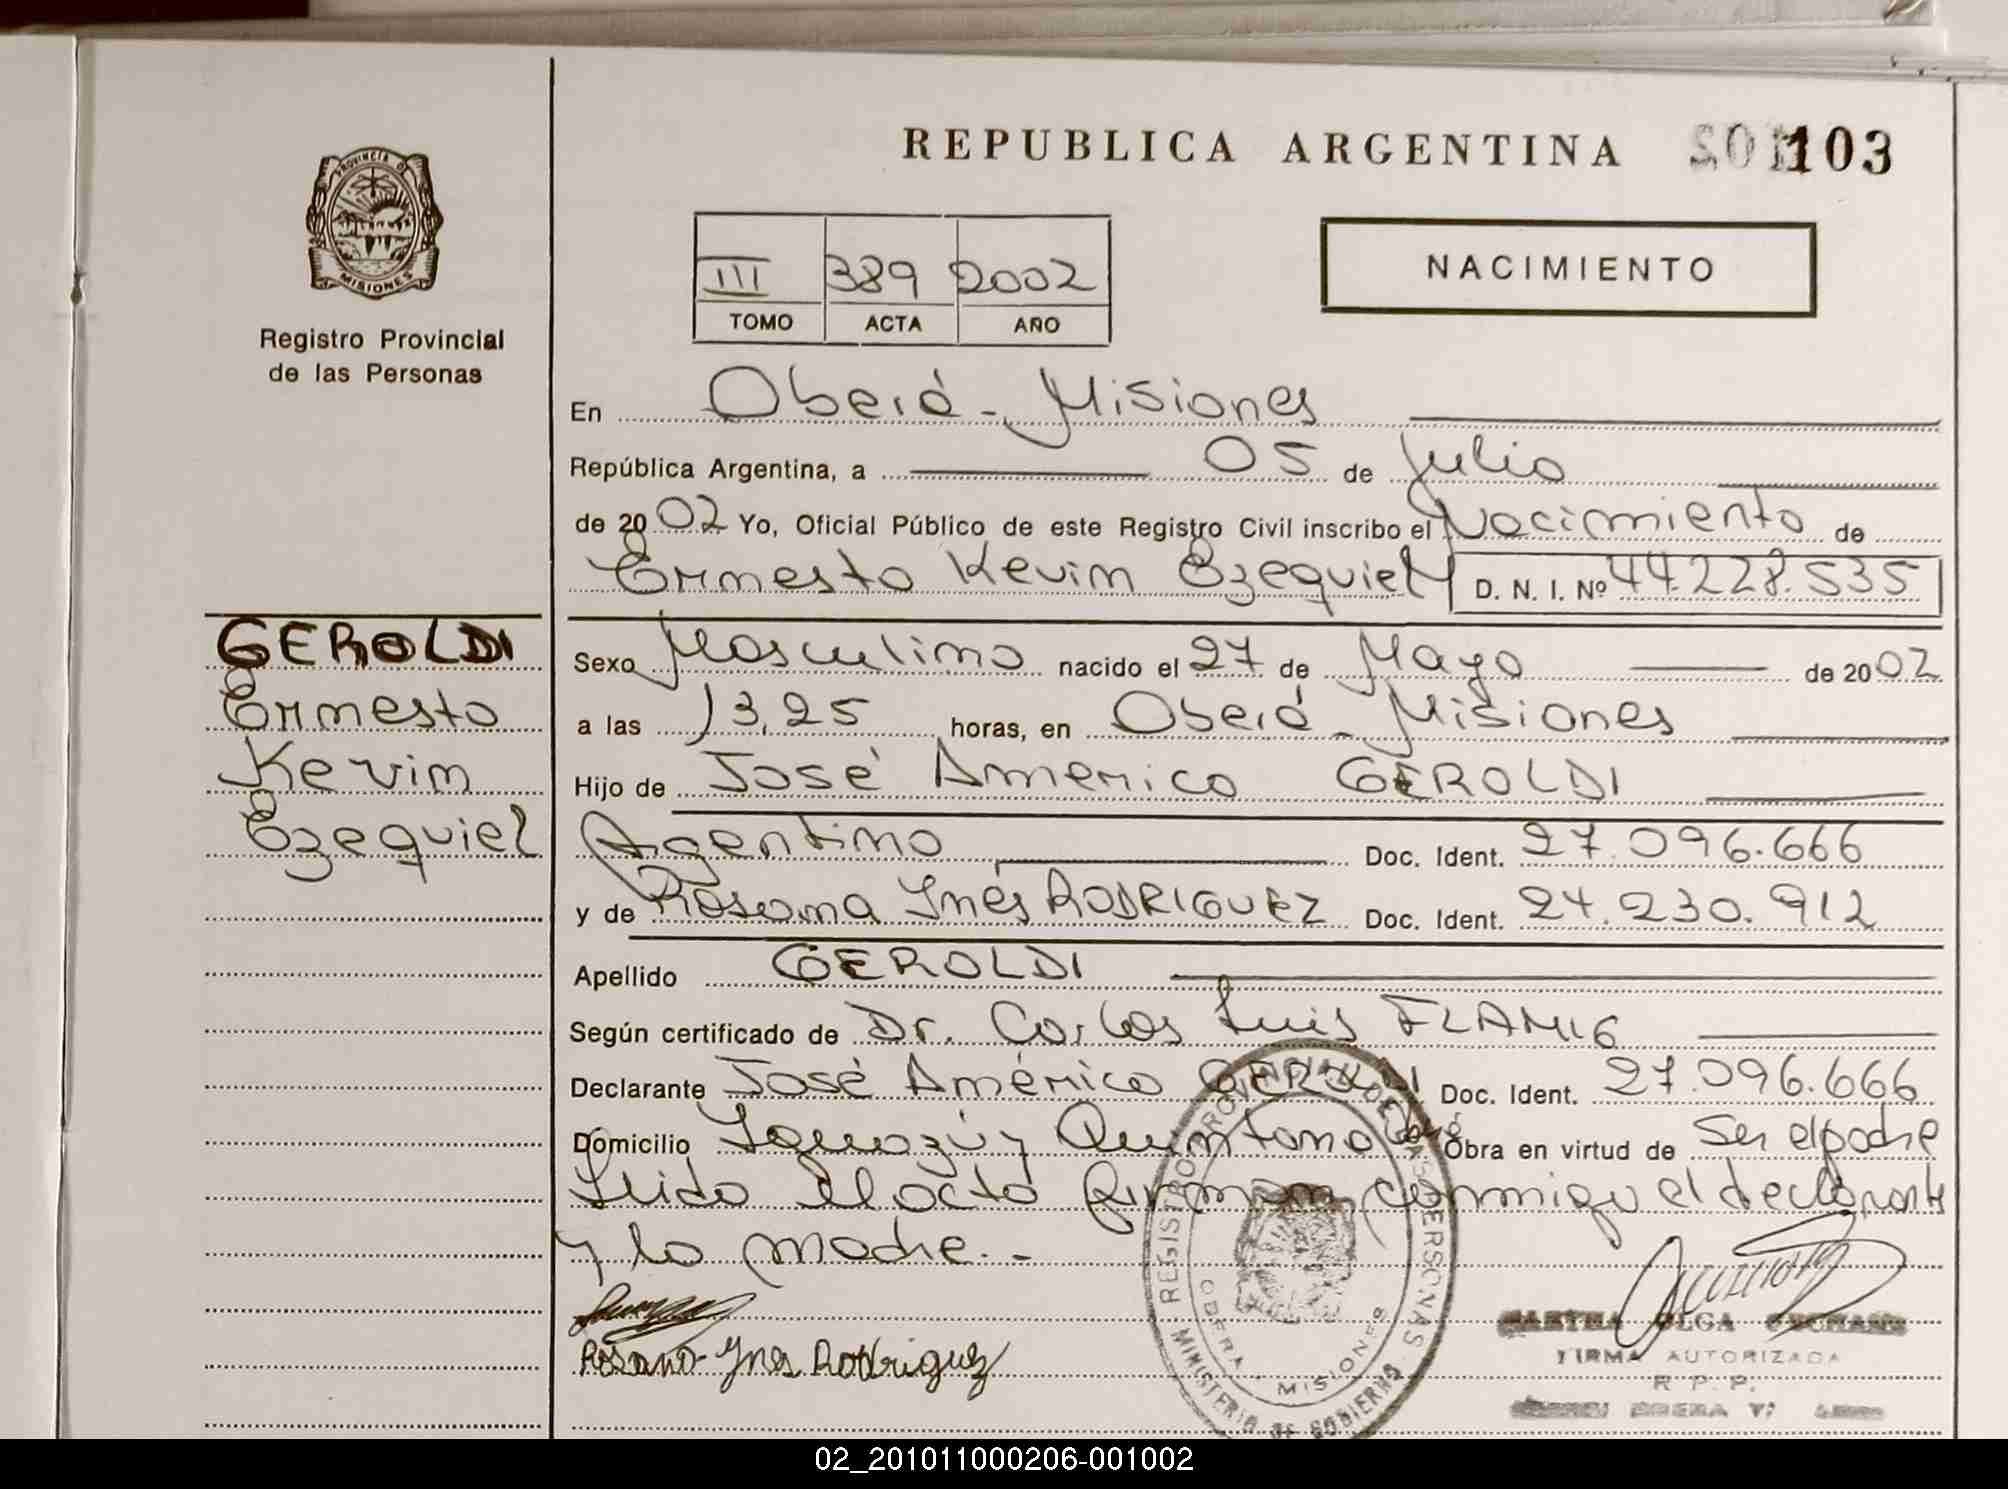 REPUBLICA ARGENTINA 103
PROVINCIA D MISIONES
Registro Provincial
de las Personas
III 389 2002
TOMO ACTA AÑO
NACIMIENTO
En Oberá - Misiones
República Argentina, a 05 de Julio
de 2002 Yo, Oficial Público de este Registro Civil inscribo el Nacimiento de
Ernesto Kevin Ezequiel D. N. I. Nº 44.228.535
GEROLDI
Ernesto
Kevin
Ezequiel
Sexo Masculino nacido el 27 de Mayo de 2002
a las 13,25 horas, en Oberá - Misiones
Hijo de José Americo GEROLDI
Argentino Doc. Ident. 27.096.666
y de Rosana Inés RODRIGUEZ Doc. Ident. 24.230.912
Apellido GEROLDI
Según certificado de Dr. Carlos Luis FLAMIG
Declarante José Américo GEROLDI Doc. Ident. 27.096.666
Domicilio Iguazú y Quintana Obra en virtud de Ser el padre
Leida el acta firman conmigo el declarante
y la madre.-
Rosana Ynes Rodriguez
REGISTRO PROVINCIAL DE LAS PERSONAS
OBERA MISIONES
MINISTERIO DE GOBIERNO
MARTHA OLGA
FIRMA AUTORIZADA
R. P. P.
02_201011000206-001002